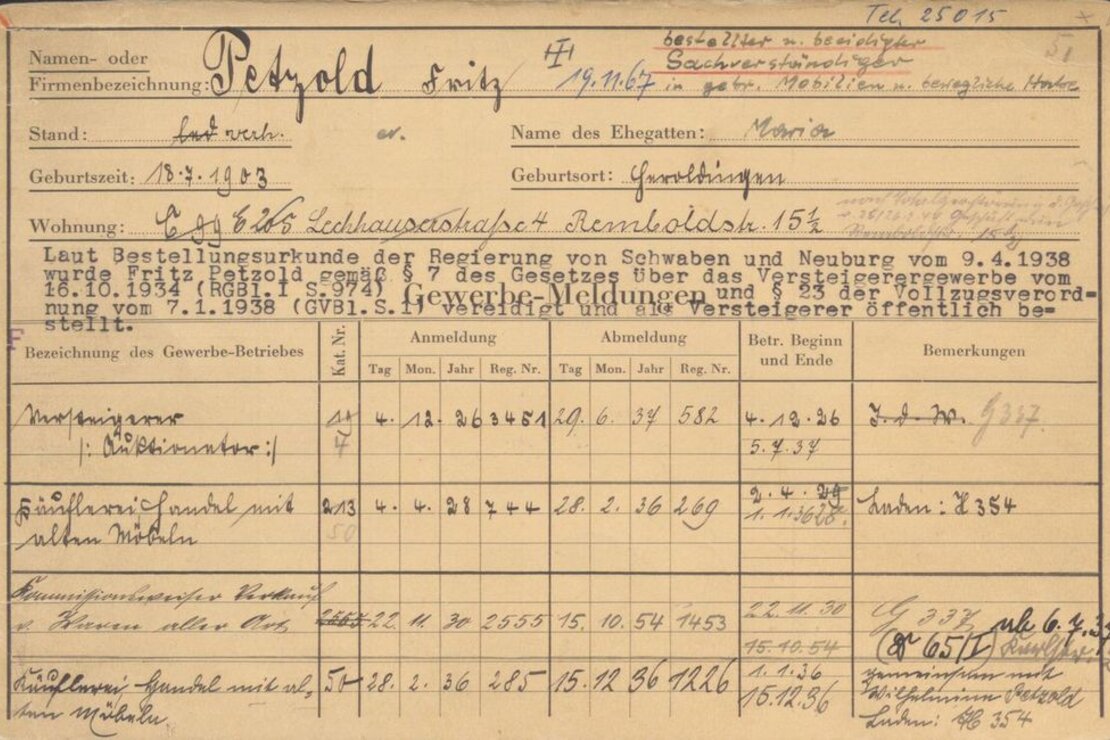 Tel. 25015
Namen- oder
Firmenbezeichnung: Petzold Fritz III 19.11.67
bestellter u. beeidigter
Sachverständiger
in gebr. Mobilien u. bewegliche Habe
51
Stand: led verh. ev. Name des Ehegatten: Maria
Geburtszeit: 18.7.1903 Geburtsort: Heroldingen
Wohnung: E 205 Lechhauserstraße 4 Remboldstr. 15½
Laut Bestellungsurkunde der Regierung von Schwaben und Neuburg vom 9.4.1938
wurde Fritz Petzold gemäß § 7 des Gesetzes über das Versteigerergewerbe vom
16.10.1934 (RGBl.I S.974) und § 23 der Vollzugsverord-
Gewerbe-Meldungen
nung vom 7.1.1938 (GVBl.S.1) vereidigt und als Versteigerer öffentlich be=
stellt.
F
Bezeichnung des Gewerbe-Betriebes Kat. Nr. Anmeldung Abmeldung Betr. Beginn und Ende Bemerkungen
Tag Mon. Jahr Reg. Nr. Tag Mon. Jahr Reg. Nr.
Versteigerer 4. 12. 26 3451 29. 6. 37 582 4.12.26 J. d. W. G 337.
/: Auktionator :/ 7 5.7.37
Käuflerei Handel mit 213 4. 4. 28 744 28. 2. 36 269 2.4.29 Laden: H 354
alten Möbeln 50 1.1.36
Kommissionsweiser Verkauf
v. Waren aller Art 2555 22. 11. 30 2555 15. 10. 54 1453 22.11.30 G 337 ab 6.7.
15.10.54 (65/I)
Käuflerei-Handel mit al- 50 28. 2. 36 285 15. 12 36 1226 1.1.36 gemeinsam mit
ten Möbeln 15.12.36 Wilhelmine Petzold
Laden: H 354